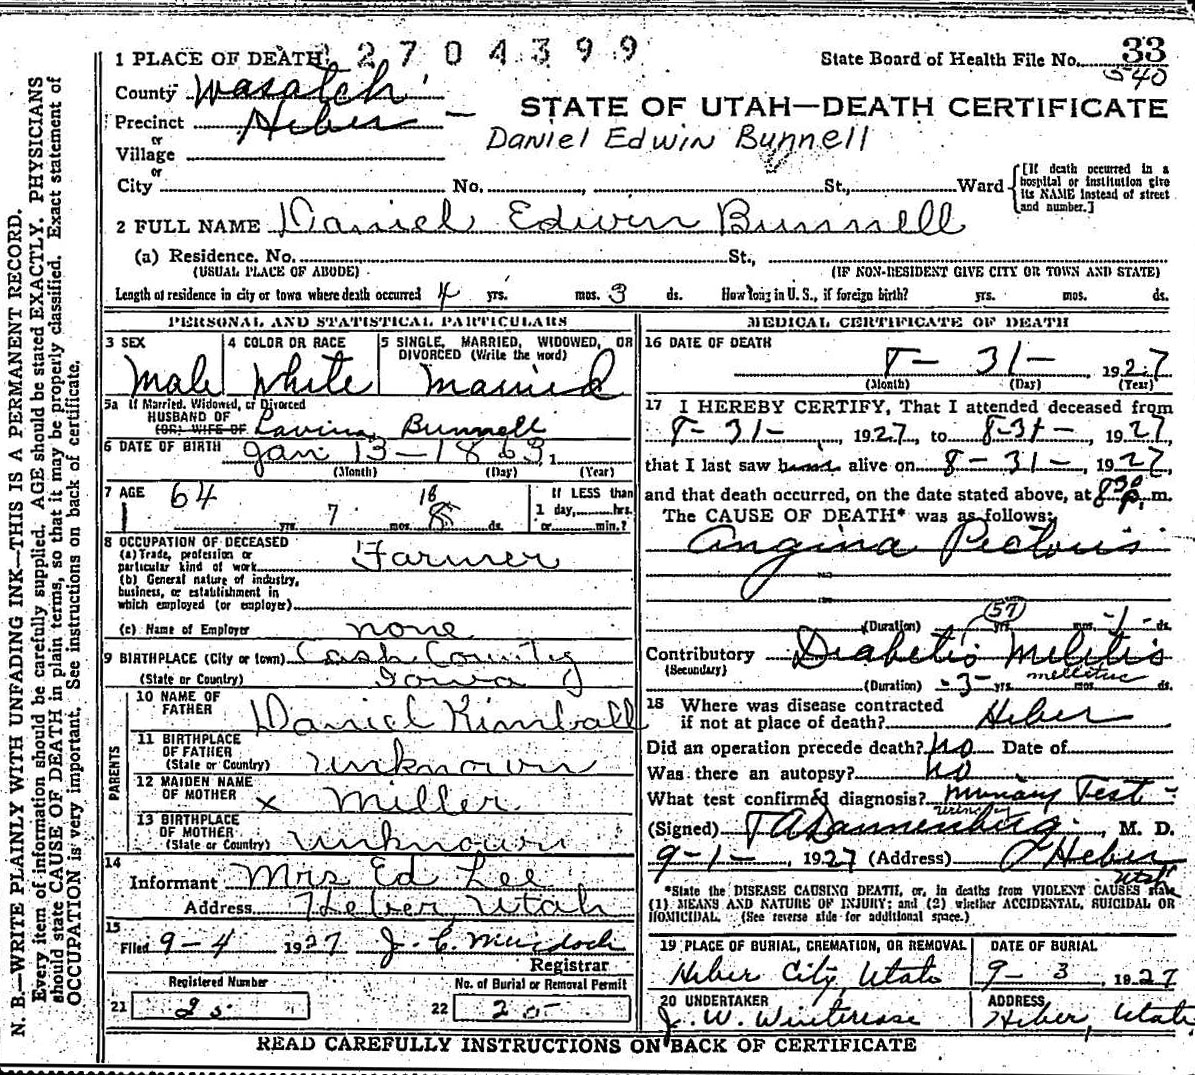 N. B.—WRITE PLAINLY WITH UNFADING INK—THIS IS A PERMANENT RECORD.
Every item of information should be carefully supplied. AGE should be stated EXACTLY. PHYSICIANS
should state CAUSE OF DEATH in plain terms, so that it may be properly classified. Exact statement of
OCCUPATION is very important. See instructions on back of certificate.
2704399
State Board of Health File No. 33
540
1 PLACE OF DEATH
County Wasatch
Precinct Heber
or
Village
or
City No. St., Ward
STATE OF UTAH—DEATH CERTIFICATE
Daniel Edwin Bunnell
[If death occurred in a
hospital or institution give
its NAME instead of street
and number.]
2 FULL NAME Daniel Edwin Bunnell
(a) Residence. No. St.,
(USUAL PLACE OF ABODE) (IF NON-RESIDENT GIVE CITY OR TOWN AND STATE)
Length of residence in city or town where death occurred 4 yrs. mos. 3 ds. How long in U. S., if foreign birth? yrs. mos. ds.
PERSONAL AND STATISTICAL PARTICULARS
3 SEX
Male
4 COLOR OR RACE
White
5 SINGLE, MARRIED, WIDOWED, OR
DIVORCED (Write the word)
Married
5a If Married, Widowed, or Divorced
HUSBAND OF
(OR) WIFE OF Lavina Bunnell
6 DATE OF BIRTH Jan 13-1863, 1
(Month) (Day) (Year)
7 AGE 64 yrs. 7 mos. 18 8 ds.
If LESS than
1 day, hrs.
or min.?
8 OCCUPATION OF DECEASED
(a) Trade, profession or
particular kind of work Farmer
(b) General nature of industry,
business, or establishment in
which employed (or employer)
(c) Name of Employer none
9 BIRTHPLACE (City or town) Cash County
(State or Country) Iowa
PARENTS
10 NAME OF
FATHER Daniel Kimball
11 BIRTHPLACE
OF FATHER
(State or Country) Unknown
12 MAIDEN NAME
OF MOTHER x Miller
13 BIRTHPLACE
OF MOTHER
(State or Country) Unknown
14
Informant Mrs Ed Lee
Address Heber, Utah
15
Filed 9-4 1927 J. C. Murdoch
Registrar
Registered Number
21
No. of Burial or Removal Permit
22
MEDICAL CERTIFICATE OF DEATH
16 DATE OF DEATH
8-31- 1927
(Month) (Day) (Year)
17 I HEREBY CERTIFY, That I attended deceased from
8-31-, 1927, to 8-31-, 1927,
that I last saw him alive on 8-31-, 1927,
and that death occurred, on the date stated above, at 8 30 p. m.
The CAUSE OF DEATH* was as follows:
Angina Pectoris
(57)
(Duration) yrs. mos. -1- ds.
Contributory Diabetis Melitis
mellitus
(Secondary)
(Duration) -3- yrs. mos. ds.
18 Where was disease contracted
if not at place of death? Heber
Did an operation precede death? no Date of
Was there an autopsy? no
What test confirmed diagnosis? Test
urinary
(Signed) M. D.
9-1-, 1927 (Address) Heber
Utah
*State the DISEASE CAUSING DEATH, or, in deaths from VIOLENT CAUSES state
(1) MEANS AND NATURE OF INJURY; and (2) whether ACCIDENTAL, SUICIDAL OR
HOMICIDAL. (See reverse side for additional space.)
19 PLACE OF BURIAL, CREMATION, OR REMOVAL
Heber City, Utah
DATE OF BURIAL
9- 3, 1927
20 UNDERTAKER
J. W. Winterose
ADDRESS
Heber, Utah
READ CAREFULLY INSTRUCTIONS ON BACK OF CERTIFICATE